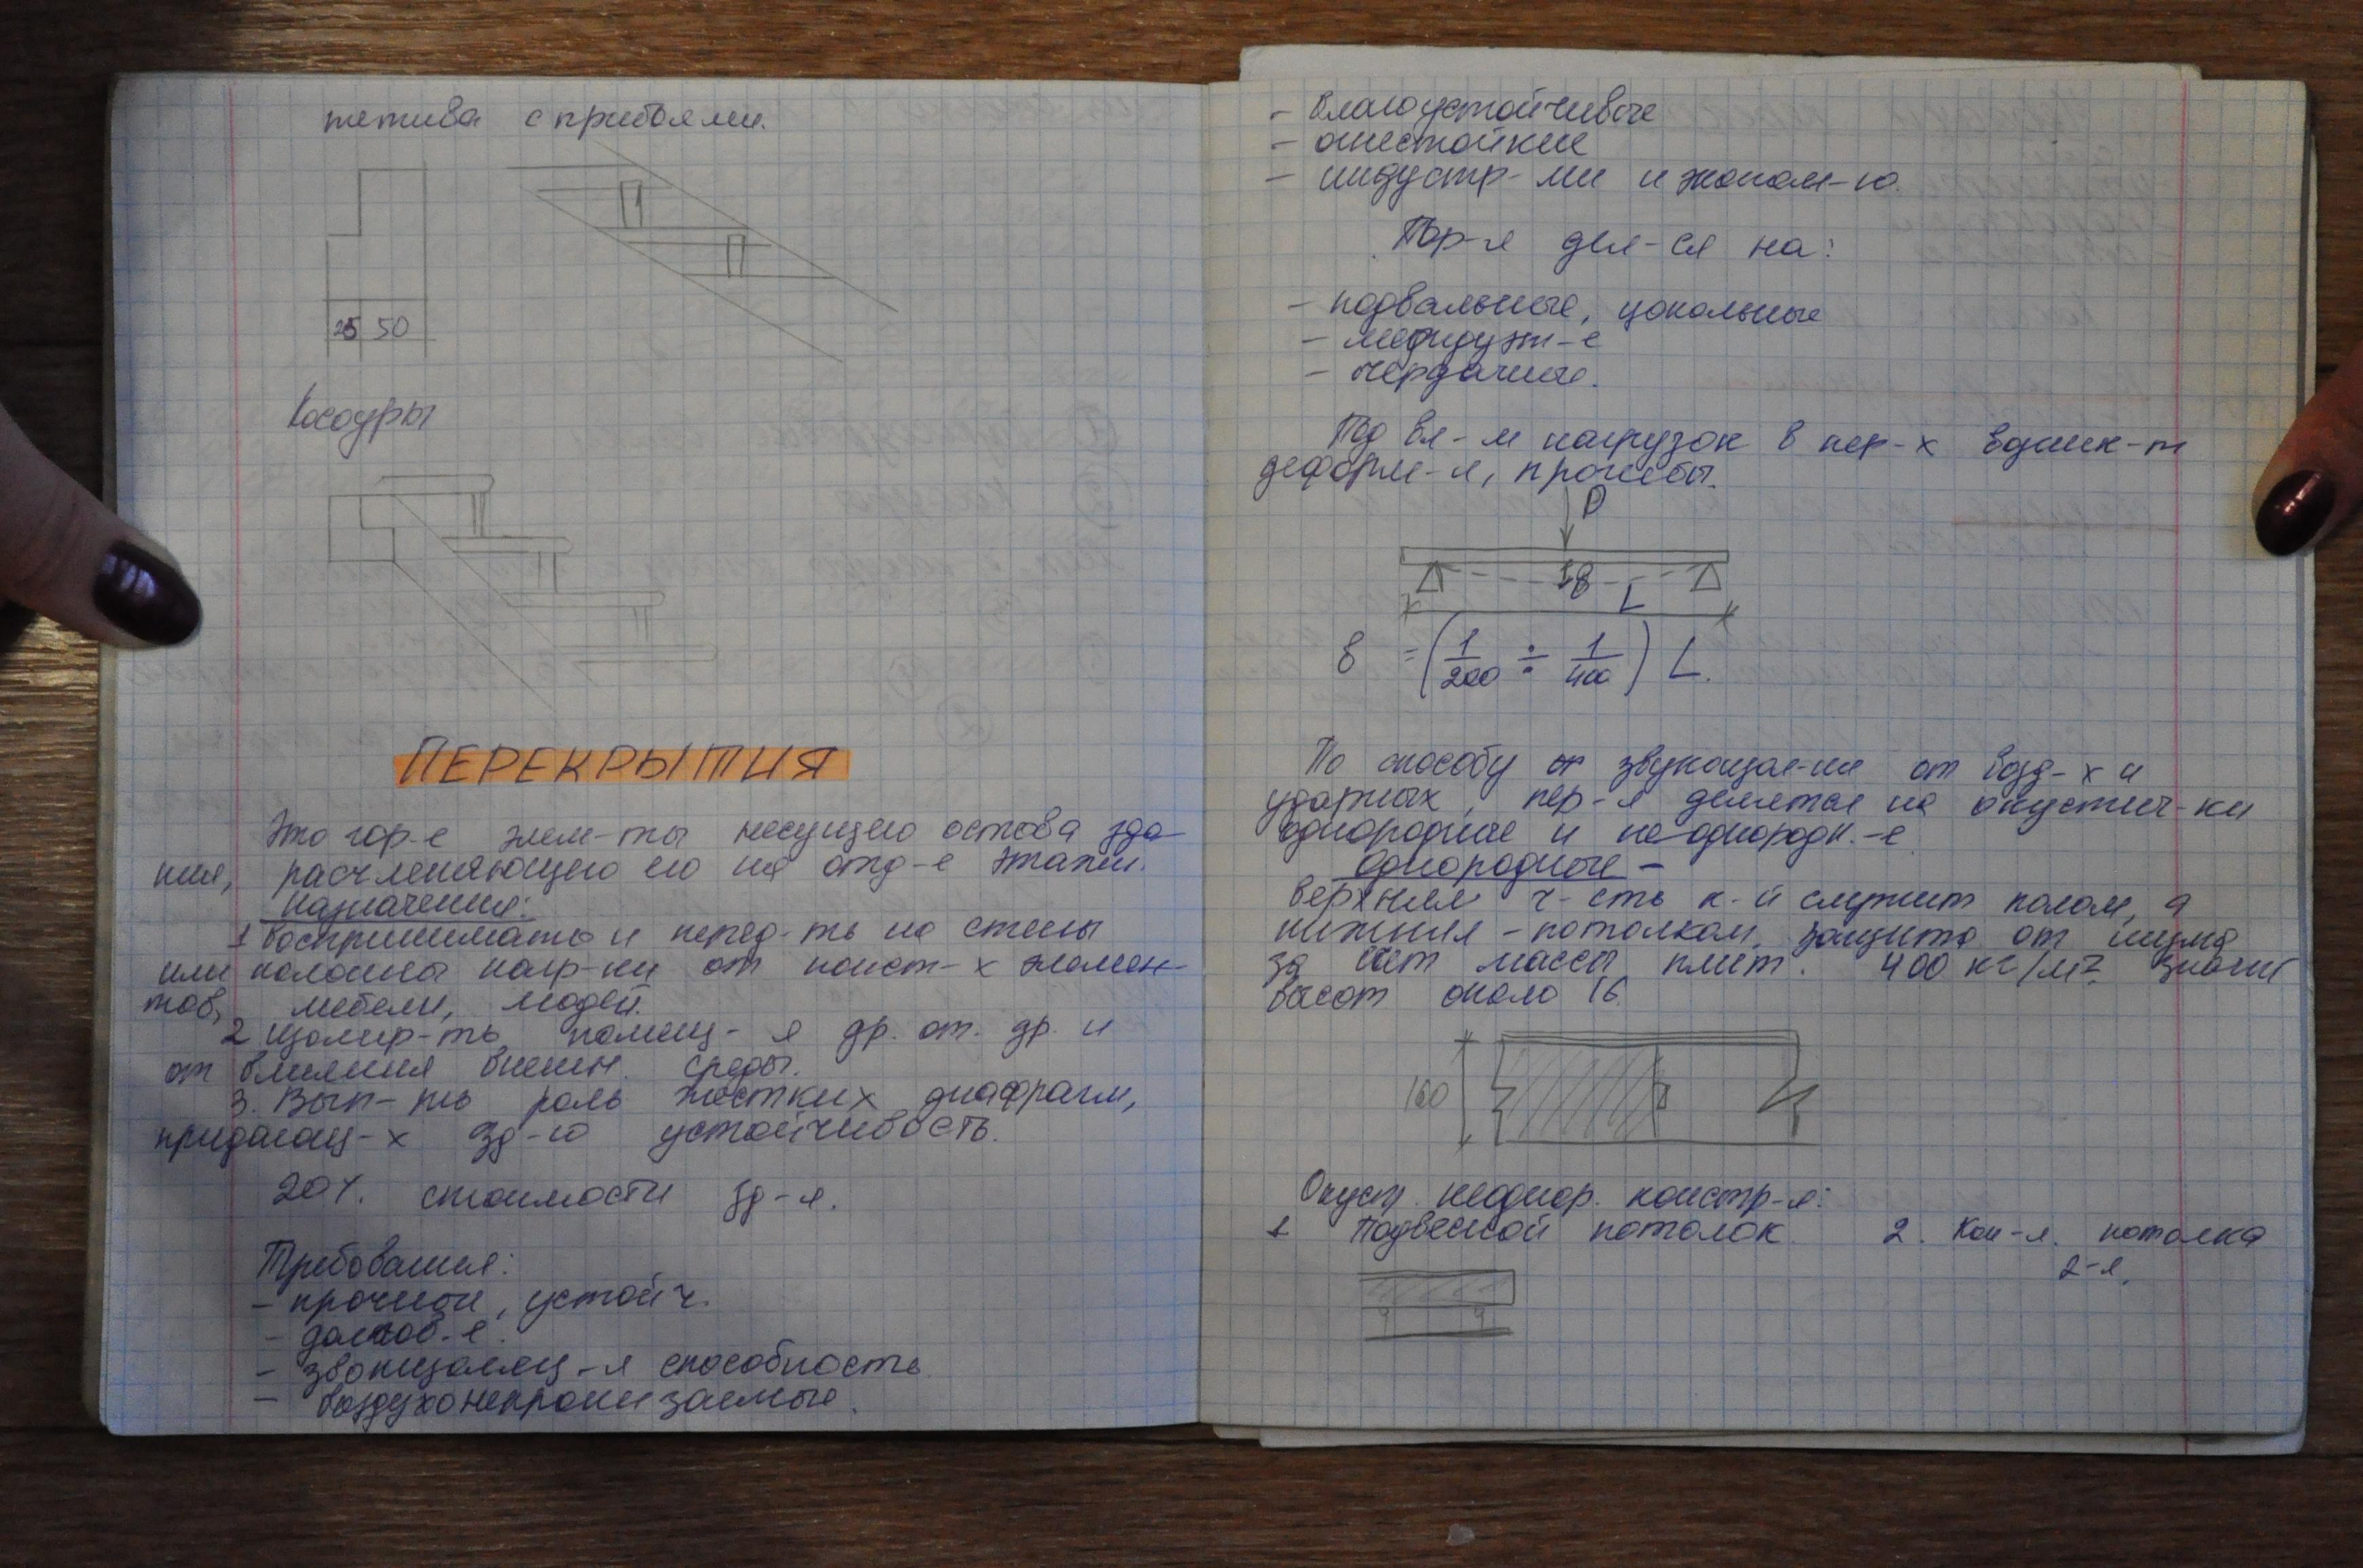 тетива с прибоями.
25 50
Косоуры
ПЕРЕКРЫТИЯ
Это гор-е элем-ты несущего остова зда-
ния, расчленяющего его на отд-е этажи.
назначения:
1 воспринимать и перед-ть на стены
или колонны нагр-ки от конст-х элемен-
тов, мебели, людей.
2 Изолир-ть помещ-я др. от. др. и
от влияния внешн. среды.
3. Вып-ть роль жестких диафрагм,
придающ-х зд-ю устойчивость.
20%. стоимости зд-я.
Требования:
- прочные, устойч.
- долгов-е.
- звокизоляц-я способность
- воздухонепроницаемые.
- влагоустойчивые
- огнестойкие
- индустр-ми и эконом-ю.
Пер-я дел-ся на:
- подвальные, цокольные
- междуэт-е
- чердачные.
Под вл-м нагрузок в пер-х возник-т
деформ-я, прогибы.
P
8
L
8 = (1/200 ÷ 1/400) L.
По способу от звукоизол-ии от возд-х и
ударных, пер-я делятся на акустич-ки
однородные и неоднородн.-е
однородные -
верхняя ч-сть к-й служит полом, а
нижняя - потолком, защита от шума
за счет массы плит. 400 кг/м². значит
высот около 16
160
Акуст. неоднор. констр-я:
1 Подвесной потолок 2. Кон-я. потолка
2-я.